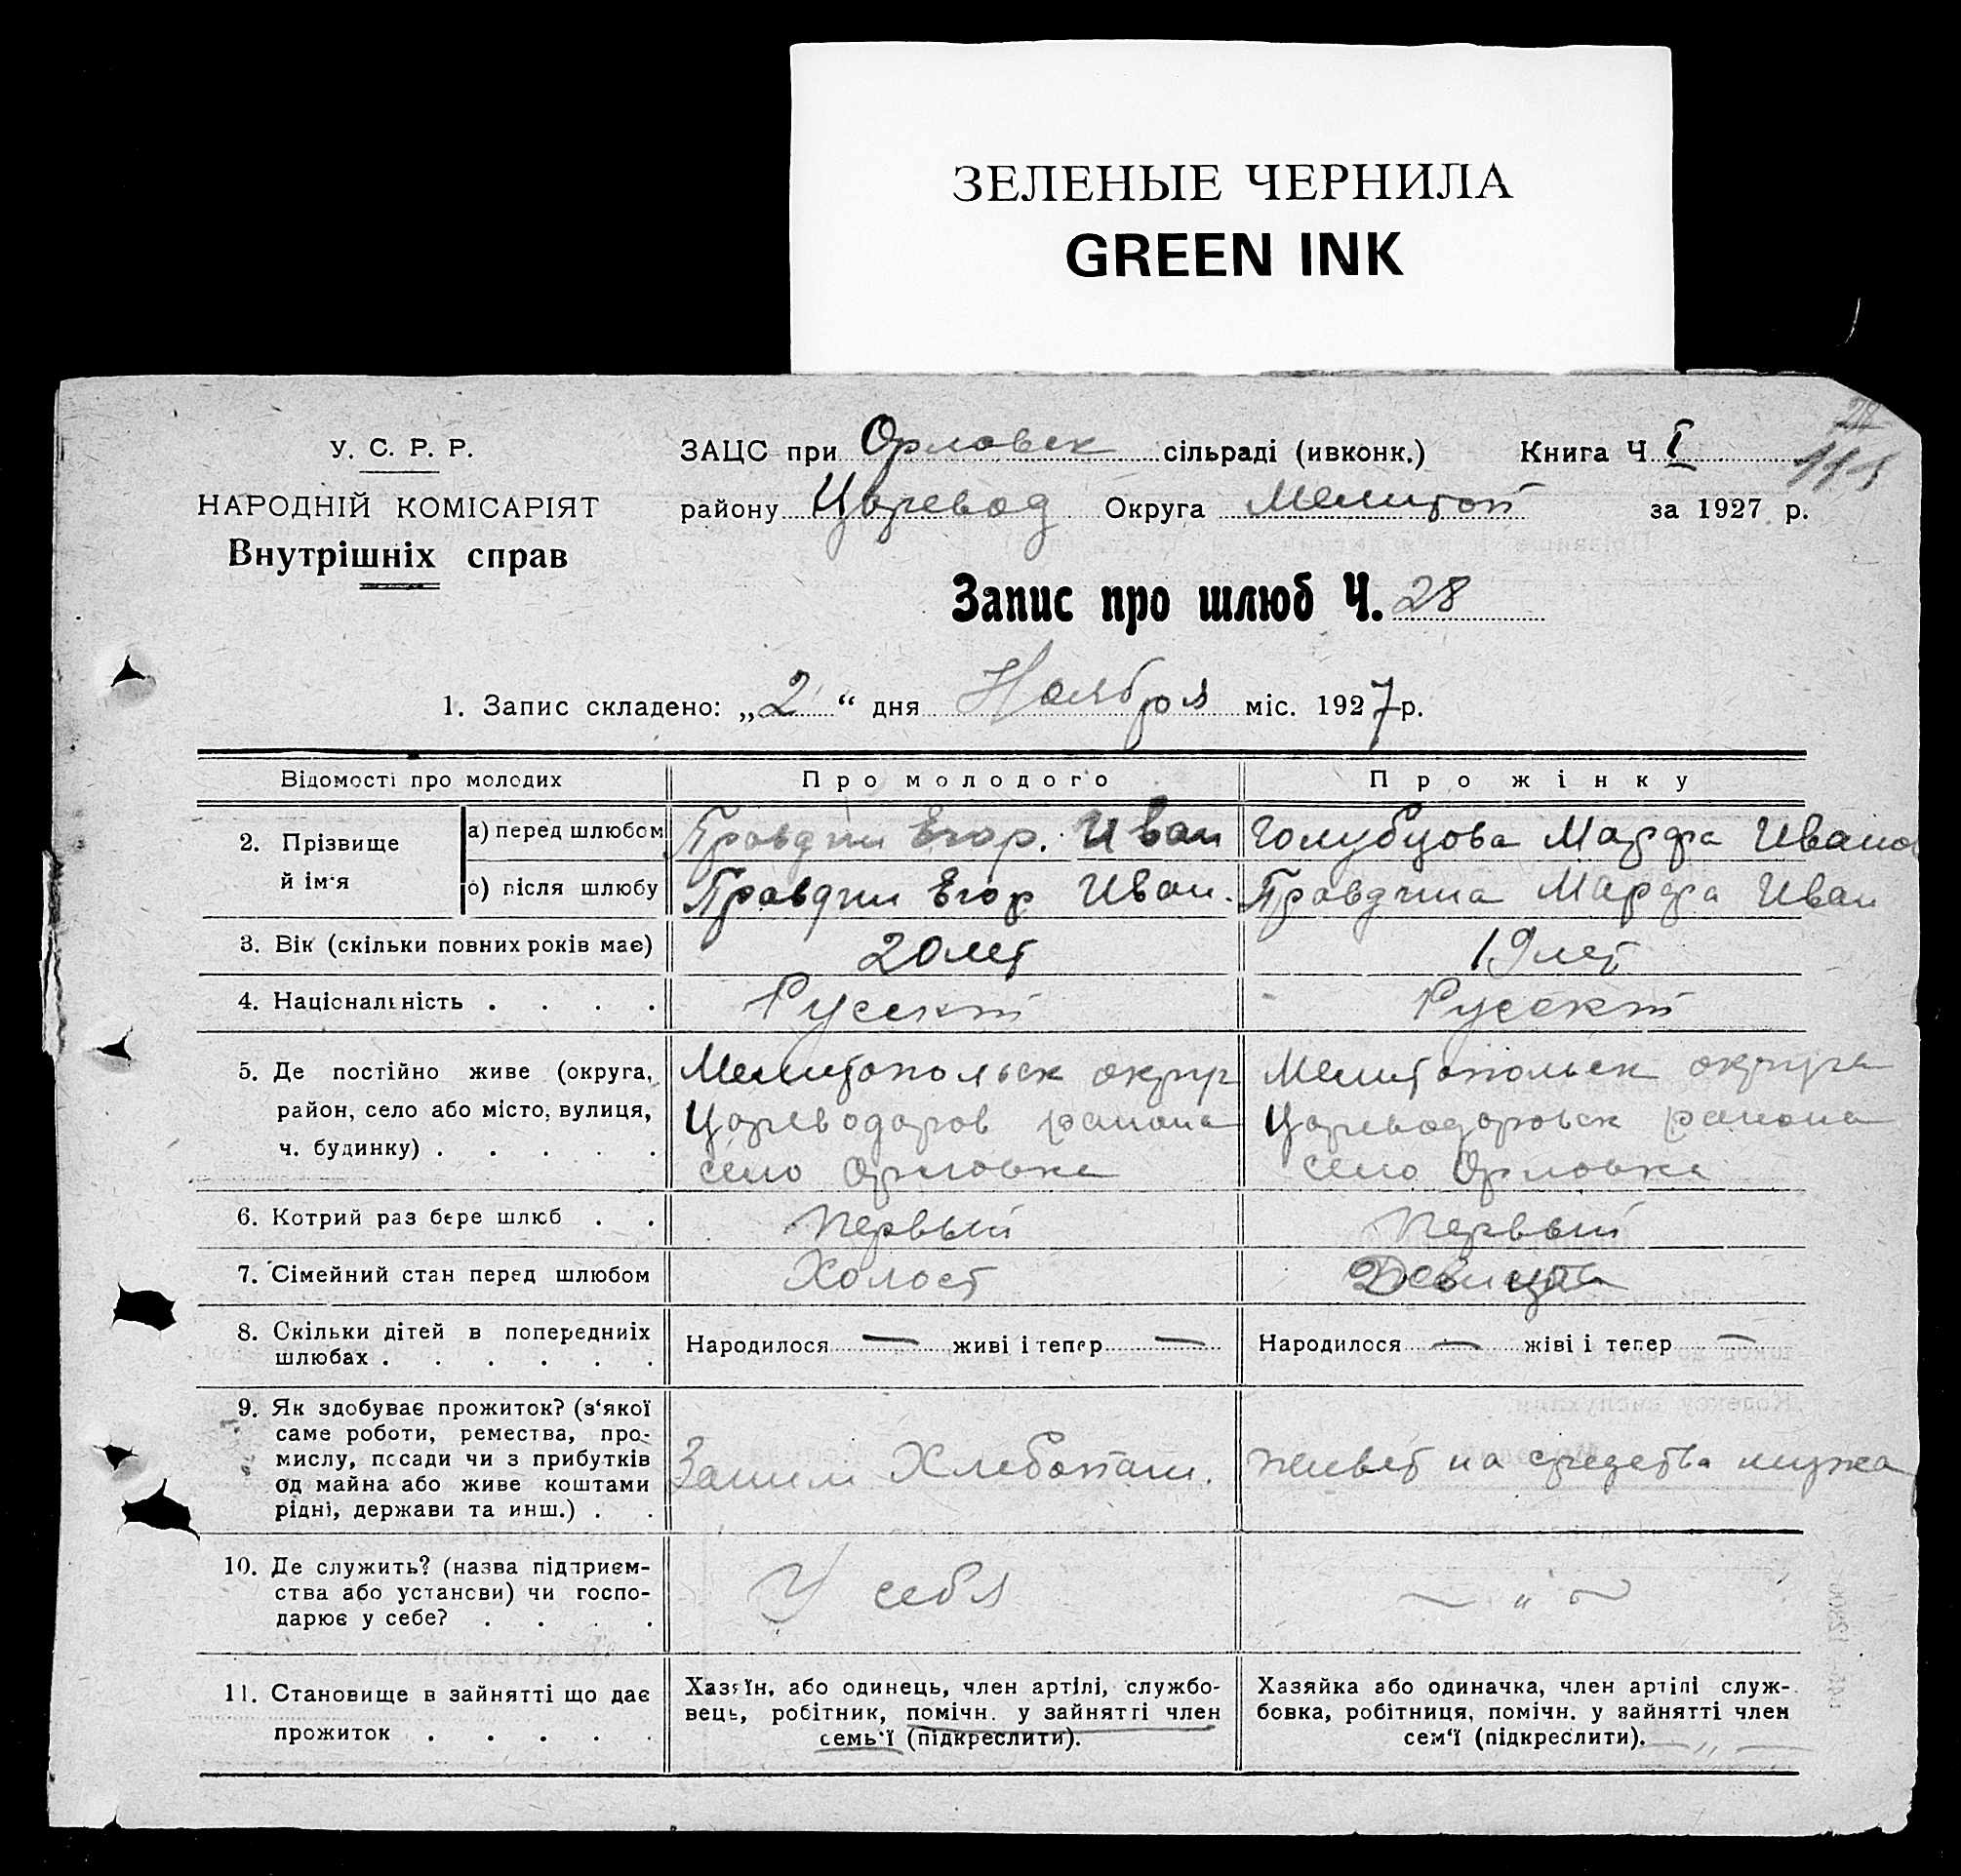 ЗЕЛЕНЫЕ ЧЕРНИЛА
GREEN INK
28
У. С. Р. Р.
НАРОДНІЙ КОМІСАРІЯТ
Внутрішніх справ
ЗАЦС при Орловск сільраді (ивконк.) Книга Ч I
району Царевод Округа Мелитоп за 1927 р.
Запис про шлюб Ч. 28
1. Запис складено: „2“ дня Ноября міс. 1927 р.
Відомості про молодих Про молодого Про жінку
2. Прізвище й ім'я
а) перед шлюбом Правдин Егор. Иван Голубцова Марфа Ивано
б) після шлюбу Правдин Егор Иван. Правдина Марфа Иван
3. Вік (скільки повних років має) 20 лет 19 лет
4. Національність . . . . Русский Русский
5. Де постійно живе (округа, район, село або місто, вулиця, ч. будинку) . . . . .
Мелитопольск округ Мелитопольск округа
Цареводаров района Цареводаровск района
село Орловка село Орловка
6. Котрий раз бере шлюб . . Первый Первый
7. Сімейний стан перед шлюбом Холост Девица
8. Скільки дітей в попередниіх шлюбах . . . . . .
Народилося — живі і тепер — Народилося — жіві і тепер —
9. Як здобуває прожиток? (з'якої
саме роботи, ремества, про-
мислу, посади чи з прибутків
од майна або живе коштами
рідні, держави та инш.) . .
Заним Хлебопаш. Живет на средства мужа
10. Де служить? (назва підприєм-
ства або установи) чи госпо-
дарює у себе? . . . .
У себя — „ —
11. Становище в зайнятті що дає
прожиток . . . . .
Хазяїн, або одинець, член артілі, службо-
вець, робітник, помічн. у зайнятті член
семь'ї (підкреслити).
Хазяйка або одиначка, член артілі служ-
бовка, робітниця, помічн. у зайнятті член
сем'ї (підкреслити). — „ —